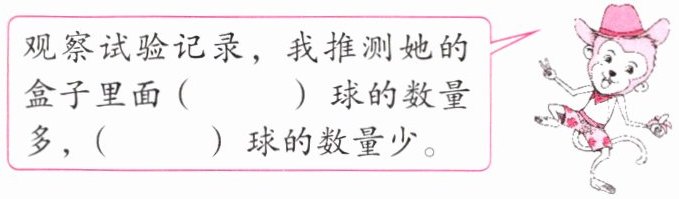 观察试验记录，我推测她的
盒子里面（　　）球的数量
多，（　　）球的数量少。